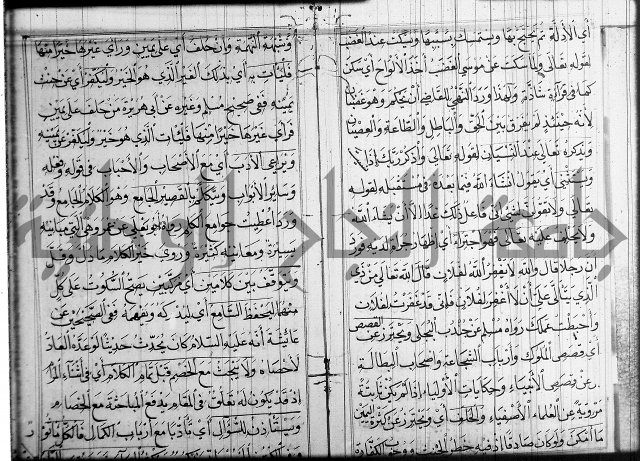 أي الأدلة ثم يحتج بها ويستمسك بسببها ويسكت عند الغضب
لقوله تعالى ولما سكت عن موسى الغضب أخذ الألواح أي سكن
كما في قراءة شاذة ولهذا ورد النهي للقاضي أن يحكم وهو غضبان
لأنه حينئذ لم يفرق بين الحق والباطل والطاعة والعصيان
ويذكره تعالى عند النسيان لقوله تعالى واذكر ربك إذا
ويستثني أي يقول إنشاء الله فيما يعده في مستقبله لقوله
تعالى ولا تقولن لشيء إني فاعل ذلك غدا إلا أن يشاء الله
ولا يحلف عليه تعالى فهو أي إظهار جرأة لديه فورد
إن رجلا قال والله لا يغفر الله لفلان قال الله تعالى من ذي
الذي يتألى على أن لا أغفر لفلان فإني قد غفرت لفلان
وأحبطت عملك رواه مسلم عن جندب البجلي ويحترز عن القصص
أي قصص الملوك وأرباب الشجاعة وأصحاب البطالة
عن قصص الأنبياء وحكايات الأولياء إذا لم يكن ثابتة
مروية عن العلماء الأصفياء والحلف أي ويحترز عن كثرة اليمين
ما أمكن ولو كان صادقا إذ فيه خطر الحنث ووجوب الكفارة
وشبهة التهمة وإن حلف أي على يمين ورأى غيرها خيرا منها
فليأت به أي بذلك الغير الذي هو الخير وليكفر أي من حنث
يمينه ففي صحيح مسلم وغيره عن أبي هريرة من حلف على يمين
فرأى غيرها خيرا منها فليأت الذي هو خير وليكفر عن يمينه
ويراعي الأدب أي مع الأصحاب والأحباب في قوله وفعله
وسائر الأبواب ويتكلم بالقصير الجامع وهو الكلام الجامع وقد
ورد أعطيت جوامع الكلم رواه أبو يعلى عن عمر وهو التي مبانيه
يسيرة ومعانيه كثيرة وروي خير الكلام ما دل وقل
ويتوقف بين كلامين أي مركبين يصح السكوت على كل
منهما ليحفظ السامع أي ليدركه ويفهمه ففي الصحيحين عن
عائشة أنه عليه السلام كان يحدث حديثا لو عده العاد
لأحصاه ولا يبحث مع الخصم قبل تمام الكلام أي في أثناء المرام
إذ قد يكون له تعلق في المقام يدفع المباحثة مع الخصام
ويستأذن للسؤال أي تأدبا مع أرباب الكمال
جامعة النجاح الوطنية